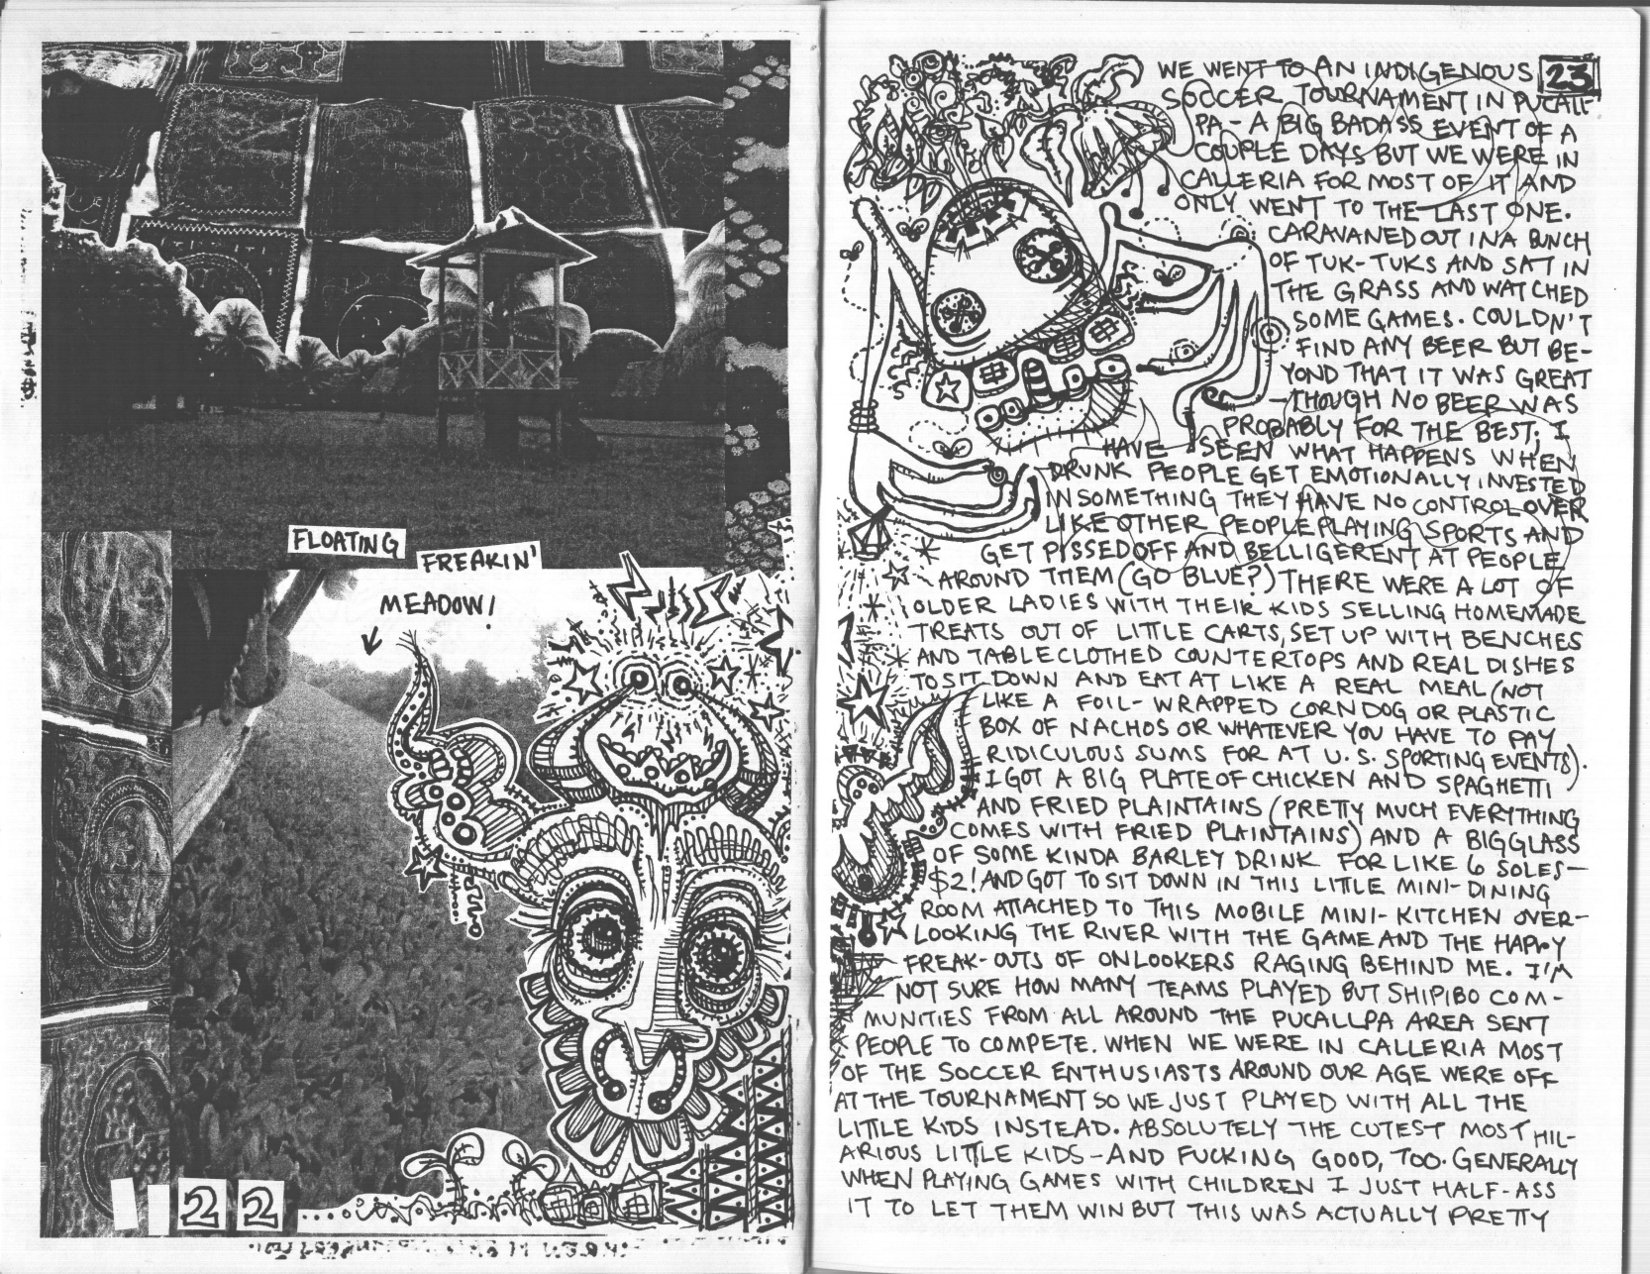 FLOATING
FREAKIN'
MEADOW!
22
23
WE WENT TO AN INDIGENOUS
SOCCER TOURNAMENT IN PUCALL-
PA - A BIG BADASS EVENT OF A
COUPLE DAYS BUT WE WERE IN
CALLERIA FOR MOST OF IT AND
ONLY WENT TO THE LAST ONE.
CARAVANED OUT IN A BUNCH
OF TUK-TUKS AND SAT IN
THE GRASS AND WATCHED
SOME GAMES. COULDN'T
FIND ANY BEER BUT BE-
YOND THAT IT WAS GREAT
-THOUGH NO BEER WAS
PROBABLY FOR THE BEST; I
HAVE SEEN WHAT HAPPENS WHEN
DRUNK PEOPLE GET EMOTIONALLY INVESTED
IN SOMETHING THEY HAVE NO CONTROL OVER
LIKE OTHER PEOPLE PLAYING SPORTS AND
GET PISSED OFF AND BELLIGERENT AT PEOPLE
AROUND THEM (GO BLUE?) THERE WERE A LOT OF
OLDER LADIES WITH THEIR KIDS SELLING HOMEMADE
TREATS OUT OF LITTLE CARTS, SET UP WITH BENCHES
AND TABLECLOTHED COUNTERTOPS AND REAL DISHES
TO SIT DOWN AND EAT AT LIKE A REAL MEAL (NOT
LIKE A FOIL-WRAPPED CORNDOG OR PLASTIC
BOX OF NACHOS OR WHATEVER YOU HAVE TO PAY
RIDICULOUS SUMS FOR AT U.S. SPORTING EVENTS).
I GOT A BIG PLATE OF CHICKEN AND SPAGHETTI
AND FRIED PLAINTAINS (PRETTY MUCH EVERYTHING
COMES WITH FRIED PLAINTAINS) AND A BIG GLASS
OF SOME KINDA BARLEY DRINK FOR LIKE 6 SOLES-
$2! AND GOT TO SIT DOWN IN THIS LITTLE MINI-DINING
ROOM ATTACHED TO THIS MOBILE MINI-KITCHEN OVER-
LOOKING THE RIVER WITH THE GAME AND THE HAPPY
FREAK-OUTS OF ONLOOKERS RAGING BEHIND ME. I'M
NOT SURE HOW MANY TEAMS PLAYED BUT SHIPIBO COM-
MUNITIES FROM ALL AROUND THE PUCALLPA AREA SENT
PEOPLE TO COMPETE. WHEN WE WERE IN CALLERIA MOST
OF THE SOCCER ENTHUSIASTS AROUND OUR AGE WERE OFF
AT THE TOURNAMENT SO WE JUST PLAYED WITH ALL THE
LITTLE KIDS INSTEAD. ABSOLUTELY THE CUTEST MOST HIL-
ARIOUS LITTLE KIDS - AND FUCKING GOOD, TOO. GENERALLY
WHEN PLAYING GAMES WITH CHILDREN I JUST HALF-ASS
IT TO LET THEM WIN BUT THIS WAS ACTUALLY PRETTY